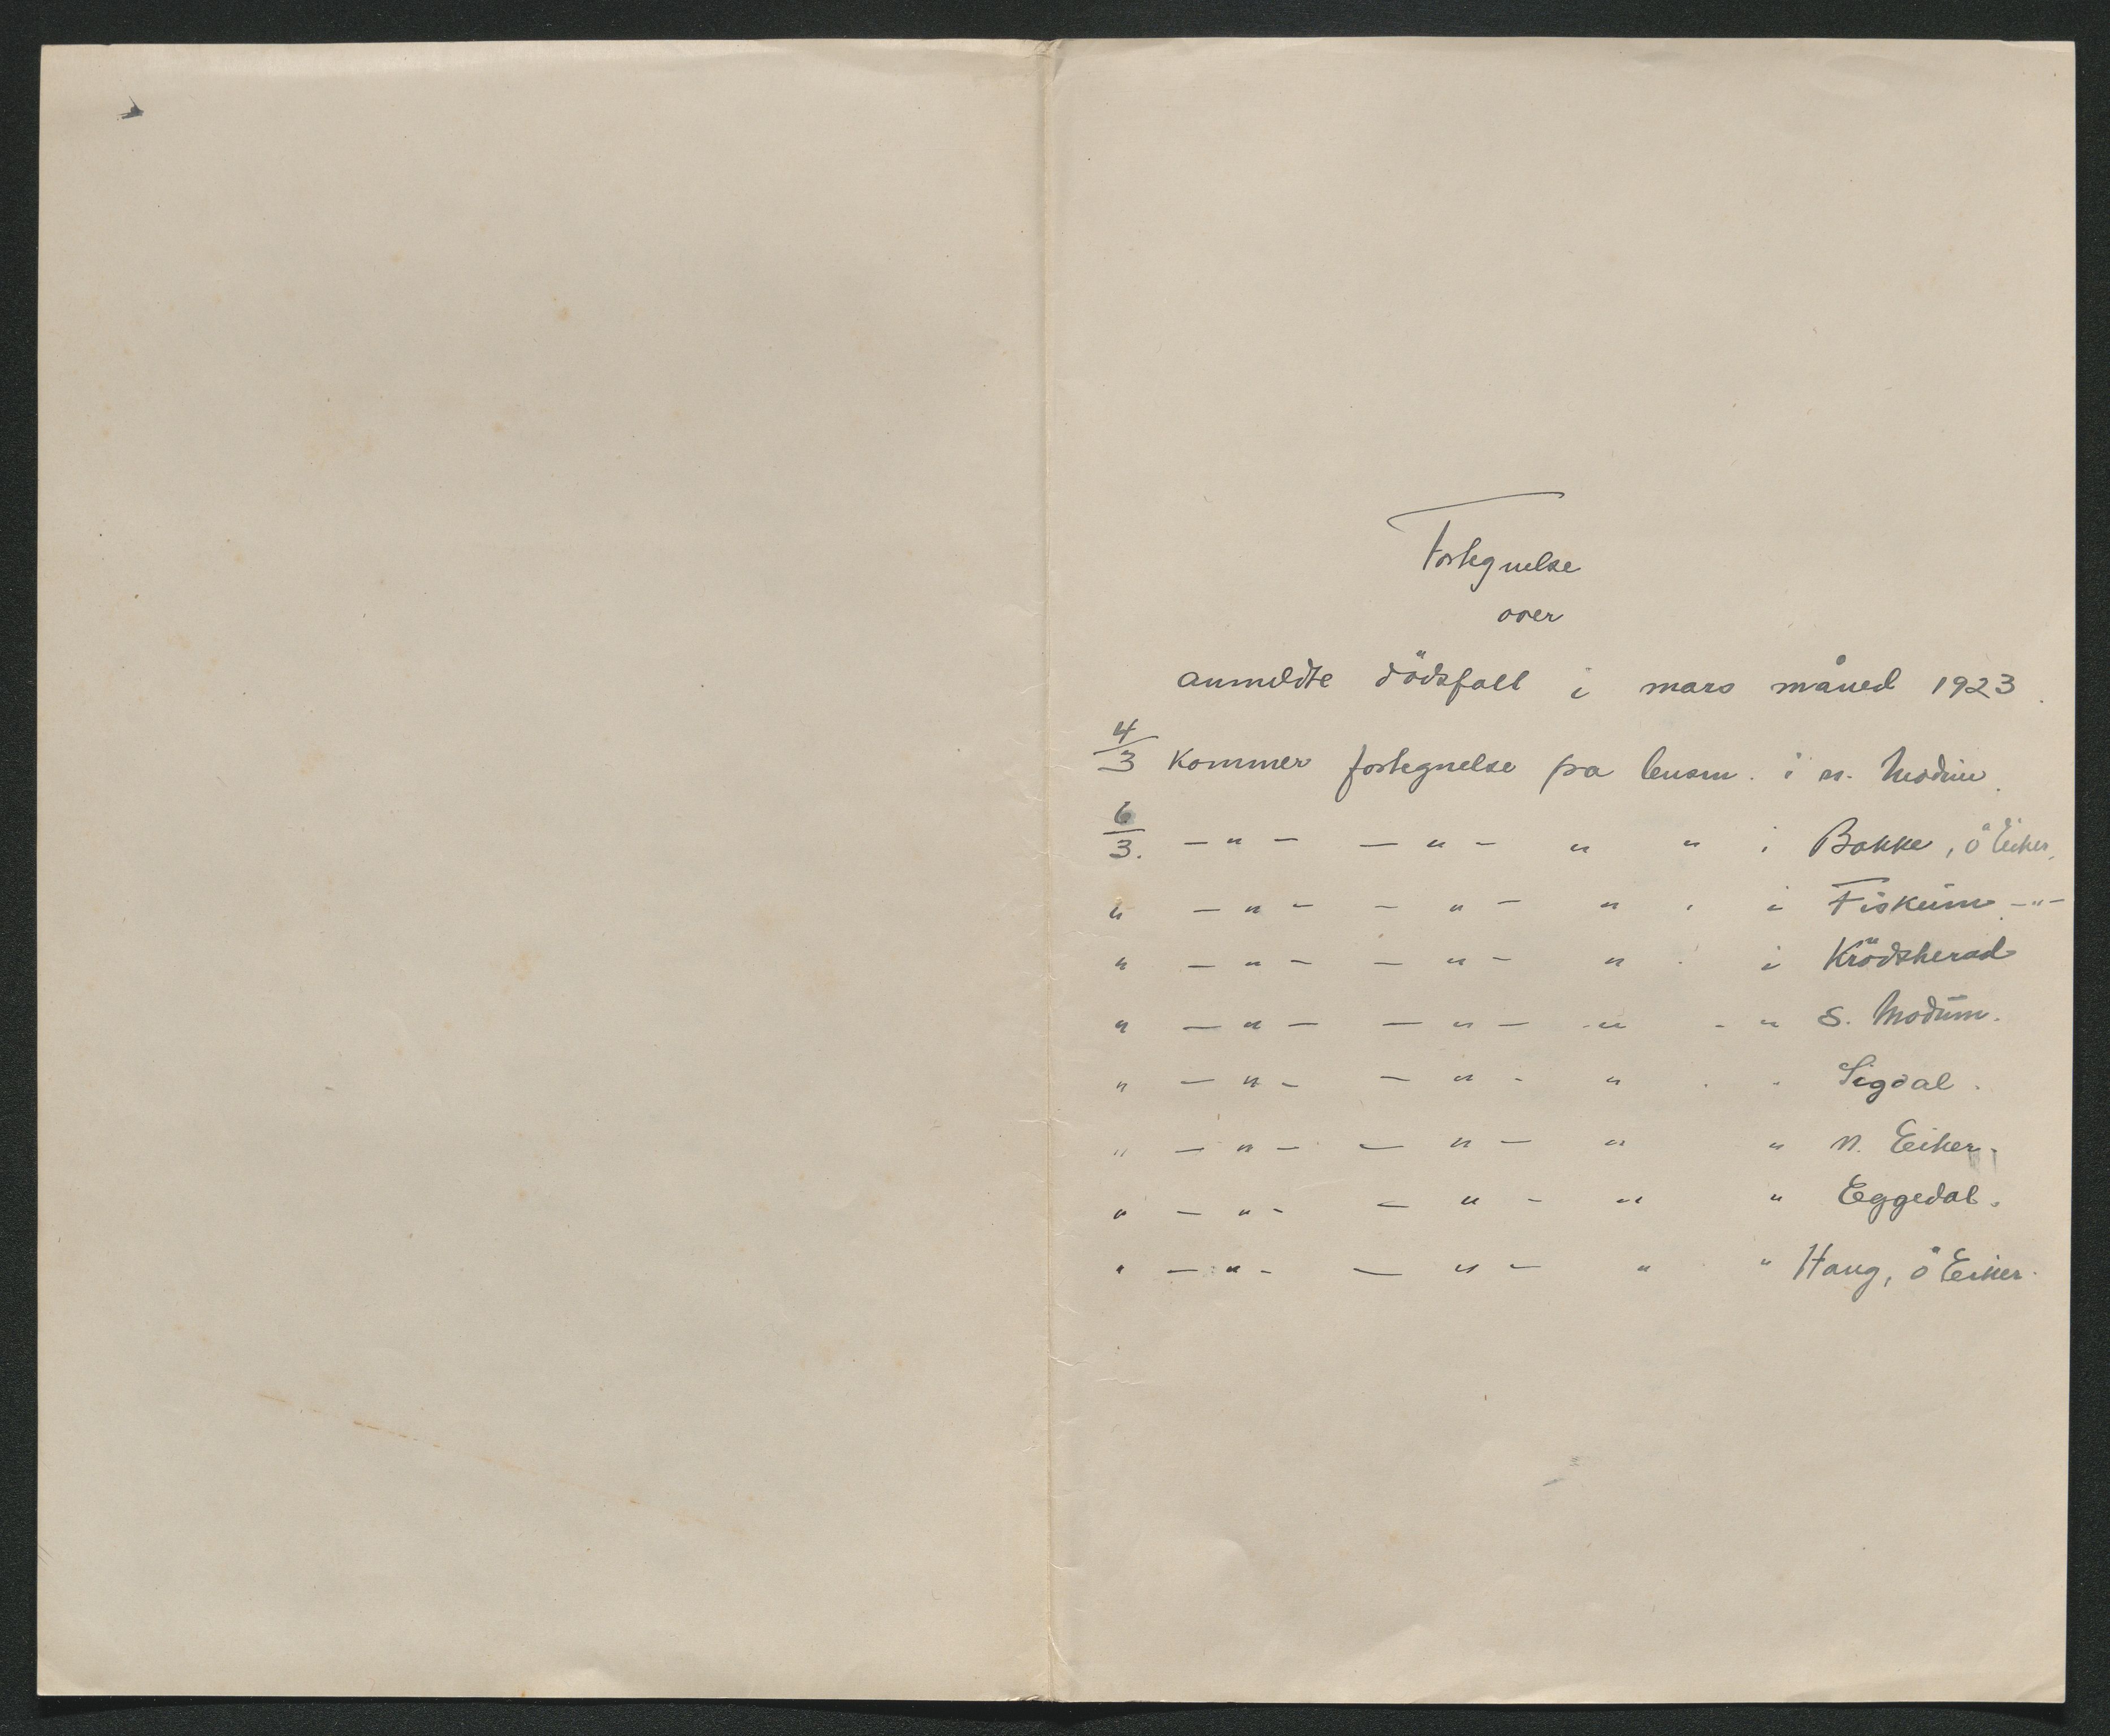 Fortegnelse
over
anmeldte dödsfall i mars måned 1923.
4/3 kommer fortegnelse fra lensm. i n. Modum.
6/3. — " — — " — " " i Bakke, ö Eiker.
" — " — — " — " " i Fiskum — " —
" — " — — " — " " i Krödsherad
" — " — — " — " " " S. Modum.
" — " — — " — " " " Sigdal.
" — " — — " — " " N. Eiker.
" — " — — " — " " Eggedal.
" — " — — " — " " Haug, ö Eiker.